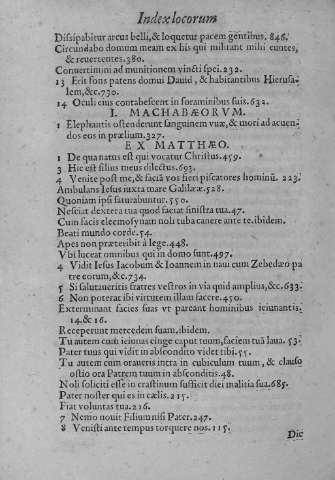 Index locorum
Dissipabitur arcus belli, & loquetur pacem gentibus. 846.
Circundabo domum meam ex his qui militant mihi euntes,
& reuertentes. 380.
Conuertimini ad munitionem vincti spei. 232.
13 Erit fons patens domui Dauid, & habitantibus Hierusa-
lem, &c. 730.
14 Oculi eius contabescent in foraminibus suis. 632.
I. MACHABÆORVM.
1 Elephantis ostenderunt sanguinem vuæ, & mori ad acuen-
dos eos in prælium. 327.
EX MATTHÆO.
1 De qua natus est qui vocatur Christus. 459.
3 Hic est filius meus dilectus. 693.
4 Venite post me, & faciã vos fieri piscatores hominũ. 223.
Ambulans Iesus iuxta mare Galilææ. 528.
Quoniam ipsi saturabuntur. 550.
Nesciat dextera tua quod faciat sinistra tua. 47.
Cum facis eleemosynam noli tuba canere ante te. ibidem.
Beati mundo corde. 54.
Apes non præteribit à lege. 448.
Vbi luceat omnibus qui in domo sunt. 497.
4 Vidit Iesus Iacobum & Ioannem in naui cum Zebedæo pa
tre eorum, &c. 734.
5 Si salutaueritis fratres vestros in via quid amplius, &c. 633.
6 Non poterat ibi virtutem illam facere. 450.
Exterminant facies suas vt pareant hominibus ieiunantis.
14. & 16.
Receperunt mercedem suam. ibidem.
Tu autem cum ieiunas cinge caput tuum, faciem tuã laua. 53.
Pater tuus qui vidit in abscondito videt tibi. 55.
Tu autem cum oraueris intra in cubiculum tuum, & clauso
ostio ora Patrem tuum in absconditis. 48.
Noli soliciti esse in crastinum sufficit diei malitia sua. 685.
Pater noster qui es in cælis. 215.
Fiat voluntas tua. 216.
7 Nemo nouit Filium nisi Pater. 247.
8 Venisti ante tempus torquere nos. 115.
Dic